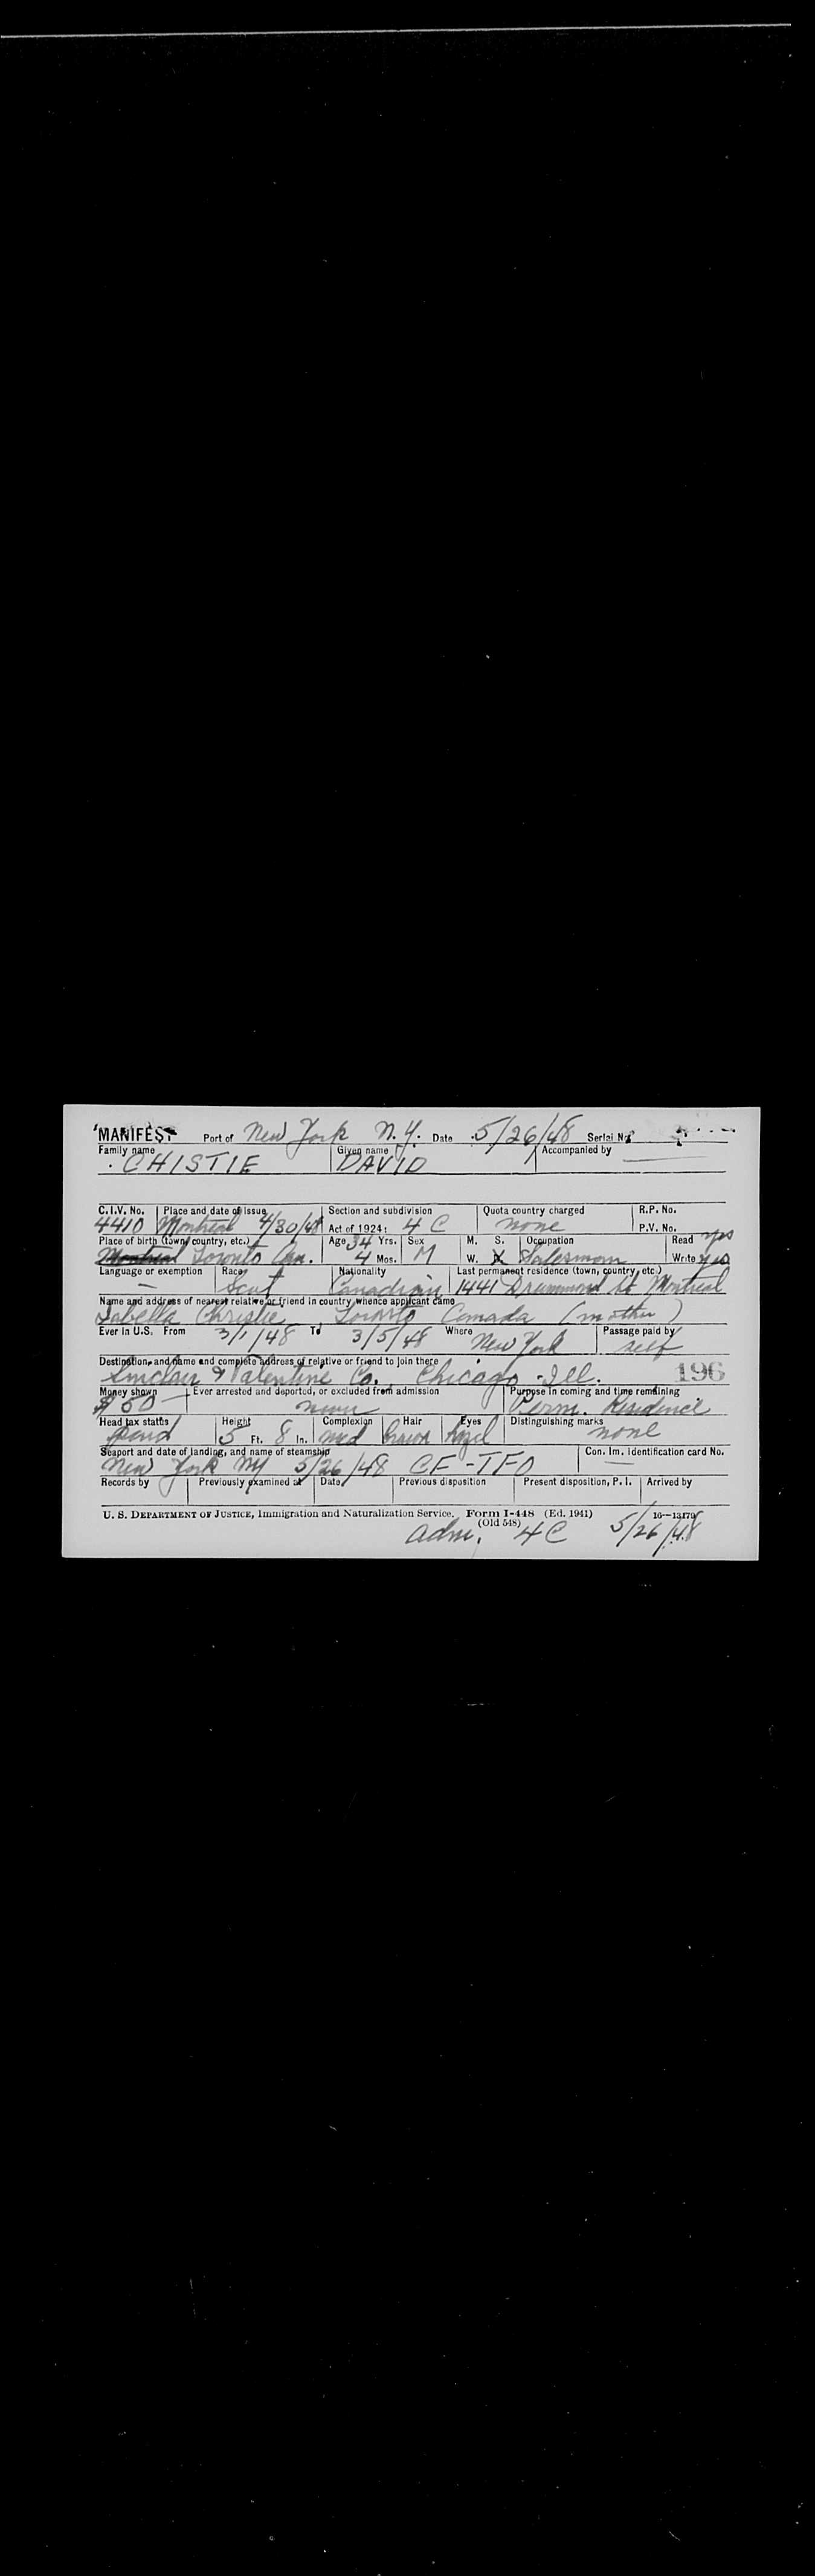 MANIFEST Port of New York N.Y. Date 5/26/48 Serial No.
Family name Given name Accompanied by
CHISTIE DAVID
C.I.V. No. Place and date of issue Section and subdivision Quota country charged R.P. No.
4410 Montreal 4/30/48 Act of 1924: 4 C none P.V. No.
Place of birth (town, country, etc.) Age 34 Yrs. Sex M. S. Occupation Read yes
Montreal Toronto Can. 4 Mos. M W. X Salesman Write yes
Language or exemption Race Nationality Last permanent residence (town, country, etc.)
— Scot Canadian 1441 Drummond St Montreal
Name and address of nearest relative or friend in country whence applicant came
Isabella Christie Toronto Canada (mother)
Ever in U.S. From 3/1/48 To 3/5/48 Where New York Passage paid by self
Destination, and name and complete address of relative or friend to join there
Sinclair & Valentine Co., Chicago Ill. 196
Money shown Ever arrested and deported, or excluded from admission Purpose in coming and time remaining
$50 never Perm. Residence
Head tax status Height Complexion Hair Eyes Distinguishing marks
paid 5 Ft. 8 In. med brown hazel none
Seaport and date of landing, and name of steamship Con. Im. Identification card No.
New York NY 5/26/48 CF-TFO —
Records by Previously examined at Date Previous disposition Present disposition, P. I. Arrived by
U. S. DEPARTMENT OF JUSTICE, Immigration and Naturalization Service. Form I-448 (Ed. 1941) 16—13179
(Old 548)
adm. 4C 5/26/48